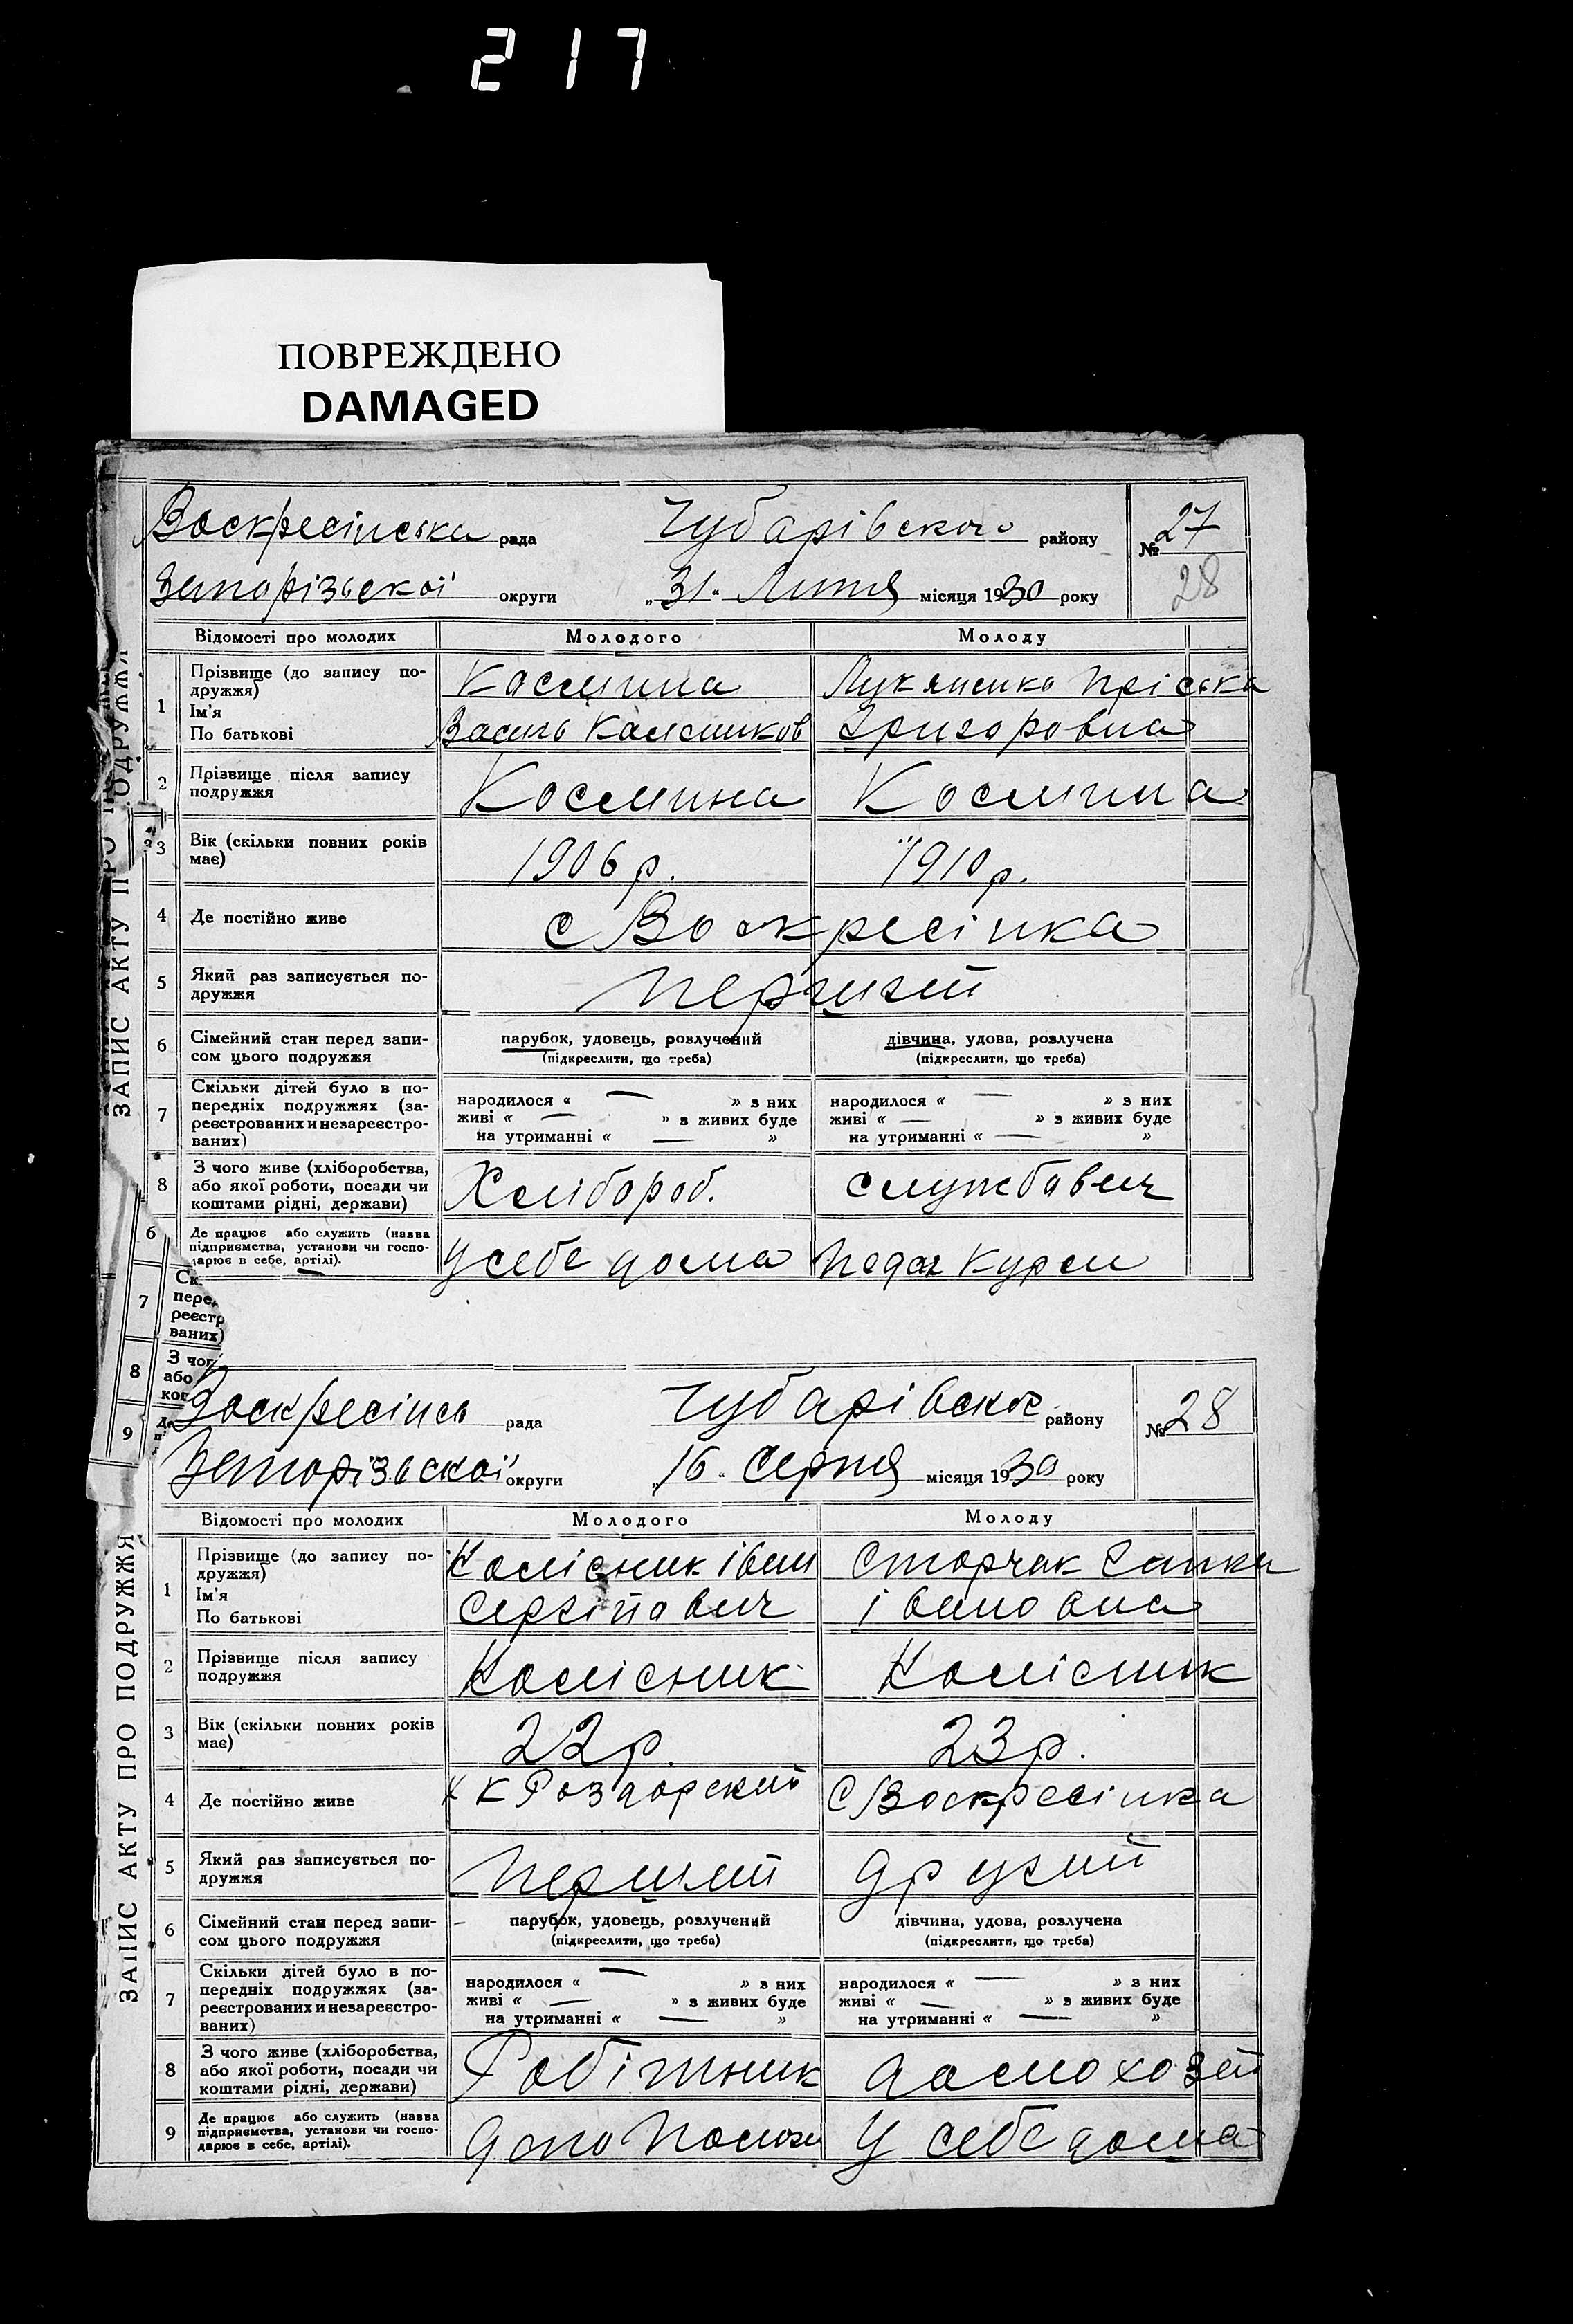 217
ПОВРЕЖДЕНО
DAMAGED
ЗАПИС АКТУ ПРО ПОДРУЖЖЯ
Воскресінська рада Чубарівского району № 27
28
Запорізьскої округи „31“ Липня місяця 1930 року
Відомості про молодих Молодого Молоду
1 Прізвище (до запису по-
дружжя)
Ім'я
По батькові
Космина
Василь
Лукяненко Пріська
Григоровна
2 Прізвище після запису
подружжя
Космина Космина
3 Вік (скільки повних років
має)
1906 р. 1910 р.
4 Де постійно живе с Воскресінка
5 Який раз записується по-
дружжя
перший
6 Сімейний стан перед запи-
сом цього подружжя
парубок, удовець, розлучений
(підкреслити, що треба)
дівчина, удова, розлучена
(підкреслити, що треба)
7 Скільки дітей було в по-
передніх подружжях (за-
реєстрованих и незареєстро-
ваних)
народилося « — » з них
живі « — » з живих буде
на утриманні « — »
народилося « — » з них
живі « — » з живих буде
на утриманні « — »
8 З чого живе (хліборобства,
або якої роботи, посади чи
коштами рідні, держави)
Хлібороб. службавич
Де працює або служить (назва
підприємства, установи чи госпо-
дарює в себе, артілі).
У себе дома Педаг Курси
6
7
8
9
Ск
перед
реєстр
ваних)
З чог
або
кош
Воскресінсь рада Чубарівск району № 28
Запорізьскої округи „16“ Серпня місяця 1930 року
ЗАПИС АКТУ ПРО ПОДРУЖЖЯ
Відомості про молодих Молодого Молоду
1 Прізвище (до запису по-
дружжя)
Ім'я
По батькові
Колісник Іван
Сергійович
Сторчак Ганка
Івановна
2 Прізвище після запису
подружжя
Колісник Колісник
3 Вік (скільки повних років
має)
22 р. 23 р.
4 Де постійно живе Роздорский с Воскресінка
5 Який раз записується по-
дружжя
перший другий
6 Сімейний стан перед запи-
сом цього подружжя
парубок, удовець, розлучений
(підкреслити, що треба)
дівчина, удова, розлучена
(підкреслити, що треба)
7 Скільки дітей було в по-
передніх подружжях (за-
реєстрованих и незареєстро-
ваних)
народилося « — » з них
живі « — » з живих буде
на утриманні « — »
народилося « — » з них
живі « — » з живих буде
на утриманні « — »
8 З чого живе (хліборобства,
або якої роботи, посади чи
коштами рідні, держави)
Робітник домохозяй
9 Де працює або служить (назва
підприємства, установи чи госпо-
дарює в себе, артілі).
Депо Пологи У себе дома